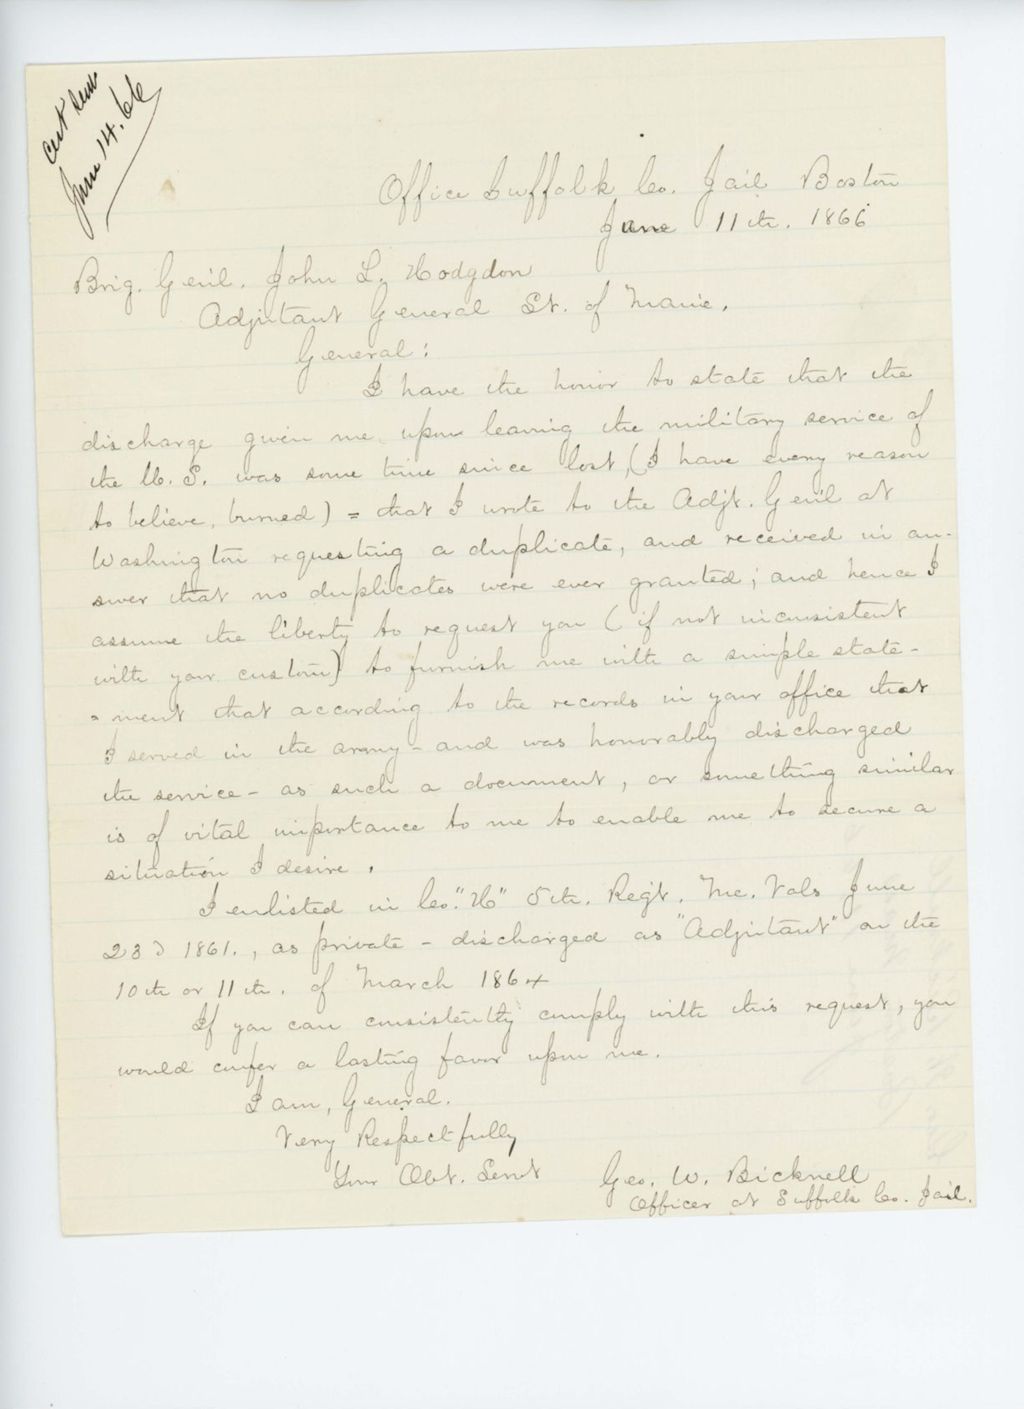 cert sent
June 14. 66
Office Suffolk Co. Jail Boston
June 11th. 1866
Brig. Genl. John L. Hodgdon
Adjutant General St. of Maine.
General:
I have the honor to state that the
discharge given me upon leaving the military service of
the U. S. was some time since lost, (I have every reason
to believe, burned) = that I wrote to the Adjt. Genl at
Washington requesting a duplicate, and received in an-
swer that no duplicates were ever granted; and hence I
assume the liberty to request you (if not inconsistent
with your custom) to furnish me with a simple state-
-ment that according to the records in your office that
I served in the army - and was honorably discharged
the service - as such a document, or something similar
is of vital importance to me to enable me to secure a
situation I desire.
I enlisted in Co. "H" 5th. Regt. Me. Vols June
23d 1861., as private - discharged as "Adjutant" on the
10th or 11th. of March 1864
If you can consistently comply with this request, you
would confer a lasting favor upon me.
I am, General.
Very Respectfully
Your Obt. Servt
Geo. W. Bicknell
Officer at Suffolk Co. Jail.